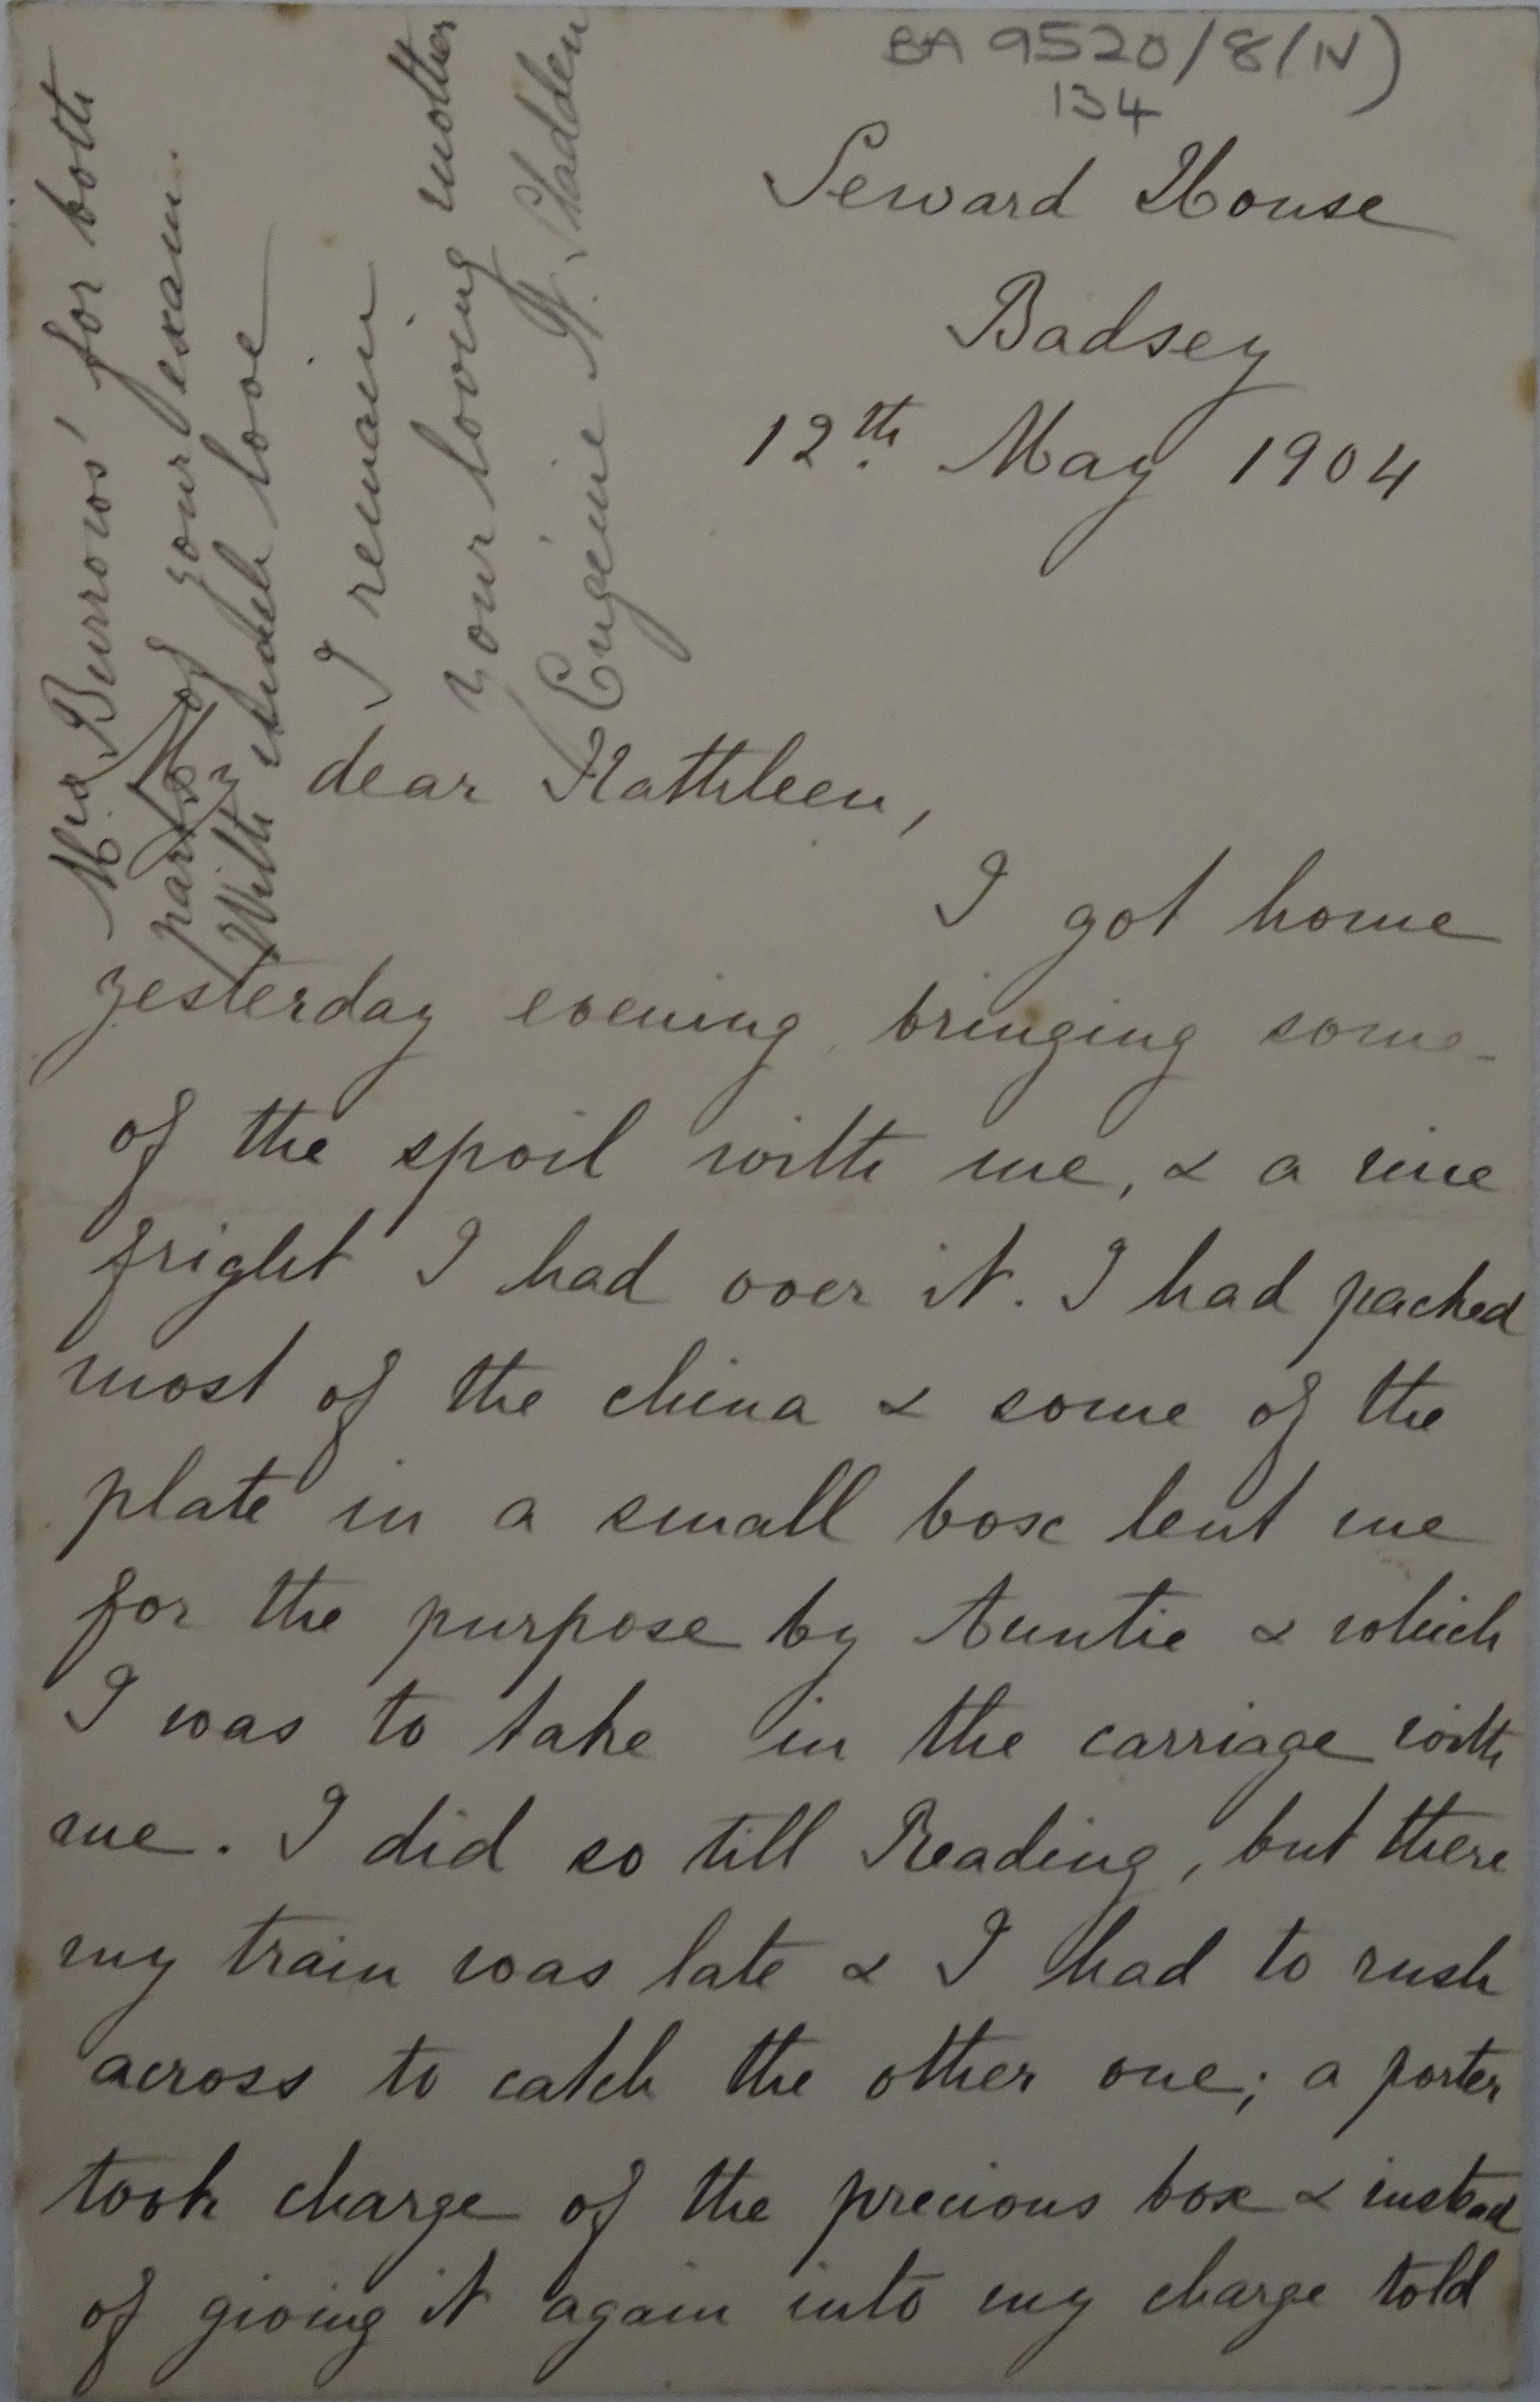 BA 9520/8/(IV)
134
Seward House
Badsey
12th. May 1904
My dear Kathleen,
I got home
yesterday evening, bringing some
of the spoil with me, & a nice
fright I had over it. I had packed
most of the china & some of the
plate in a small box lent me
for the purpose by Auntie & which
I was to take in the carriage with
me. I did so till Reading, but there
my train was late & I had to rush
across to catch the other one; a porter
took charge of the precious box & instead
of giving it again into my charge told
Mrs Burrows' for both
parts of your exam.
With much love
I remain
your loving mother
Eugénie N. Sladden